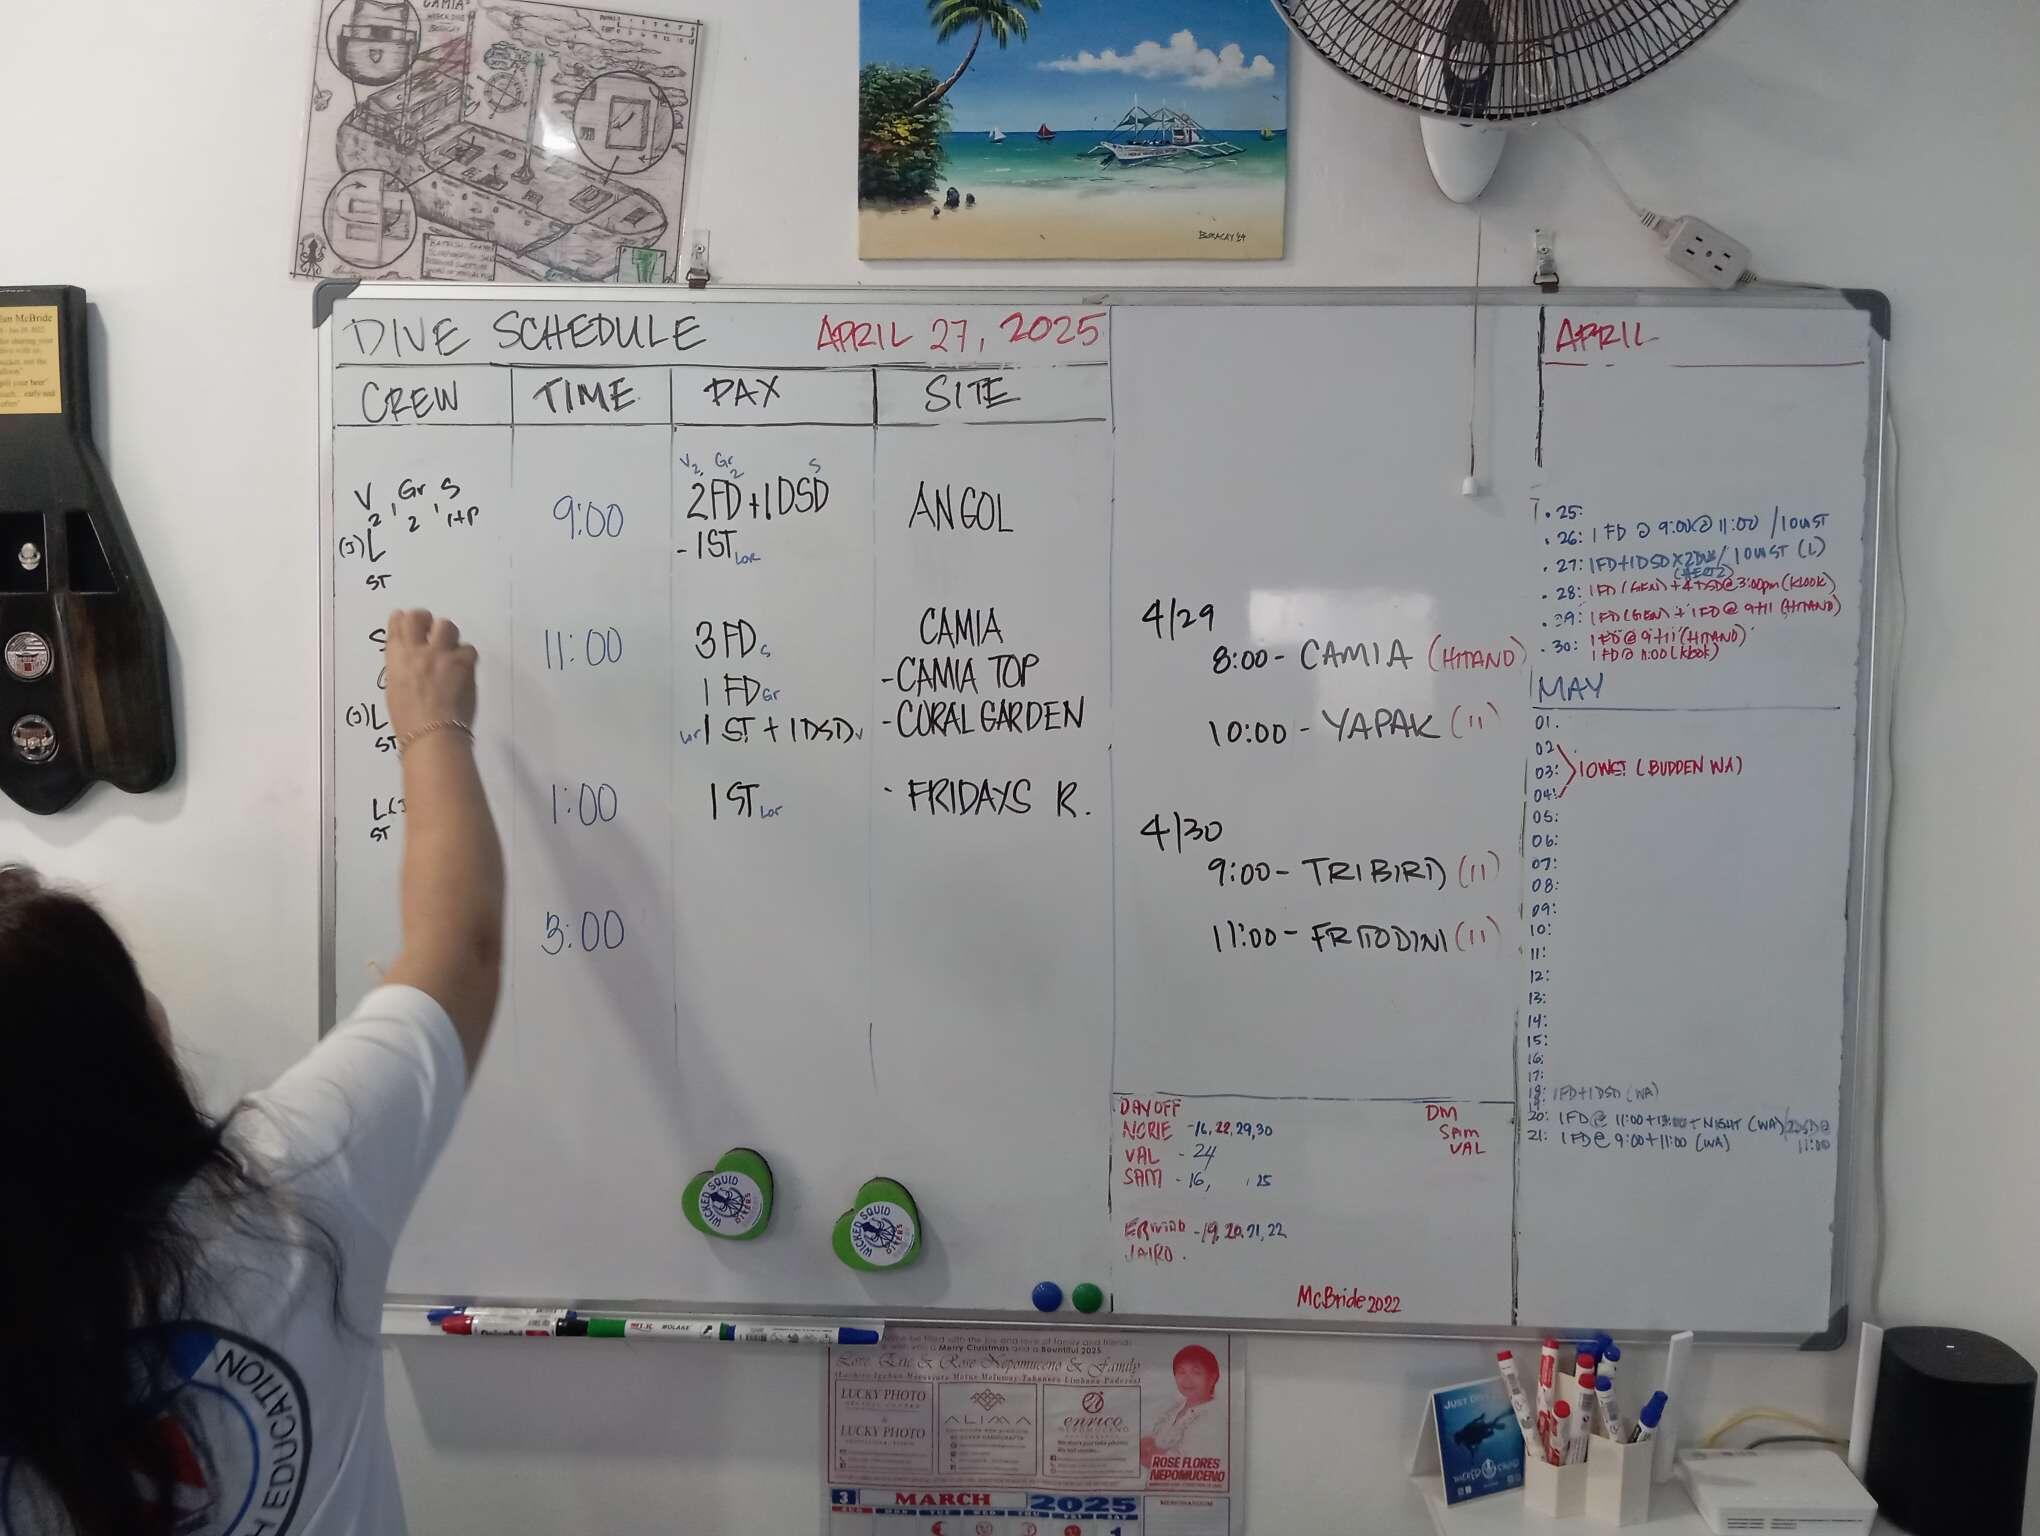 CAMIA
BORACAY '24
DIVE SCHEDULE APRIL 27, 2025
CREW TIME PAX SITE
V2, Gr2 S
V2, Gr2, S1+P 9:00 2FD+1DSD ANGOL
(J)L - 1ST Lor
ST
S 11:00 3FD S CAMIA
1 FD Gr - CAMIA TOP
(J)L Lor 1 ST + 1DSD V - CORAL GARDEN
ST
L(J 1:00 1 ST Lor - FRIDAYS R.
ST
3:00
4/29
8:00 - CAMIA (HITANO)
10:00 - YAPAK (11)
4/30
9:00 - TRIBIRD (11)
11:00 -
DAYOFF
NORIE - 16, 22, 29, 30
VAL - 24
SAM - 16, , 25
- 19, 20, 21, 22
JAIRO.
DM
SAM
VAL
McBride 2022
APRIL
. 25:
. 26: 1 FD @ 9:00 @ 11:00 /
. 27: 1FD+1DSD X2 / (L)
. 28: 1FD (GEN) + 4 DSD @ 3:00pm (Klook)
. 29: 1FD (GEN) + 1FD @ 9+11 (HITANO)
. 30: 1FD @ 9+11 (HITANO)
1 FD @ 11:00 (Klook)
MAY
01.
02
03: (BUDDEN WA)
04:
05:
06:
07:
08:
09:
10:
11:
12:
13:
14:
15:
16:
17:
18: 1FD+1DSD (WA)
19:
20: 1FD @ 11:00 + NIGHT (WA) / 2DSD @ 11:00
21: 1FD @ 9:00+11:00 (WA)
WICKED SQUID DIVERS
WICKED SQUID DIVERS
EDUCATION
Merry Christmas and a Bountiful 2025
Love, Eric & Rose Nepomuceno & Family
LUCKY PHOTO
LUCKY PHOTO
ALIMA
enrico
ROSE FLORES
NEPOMUCENO
3 MARCH 2025
MEMORANDUM
1
JUST
WICKED SQUID